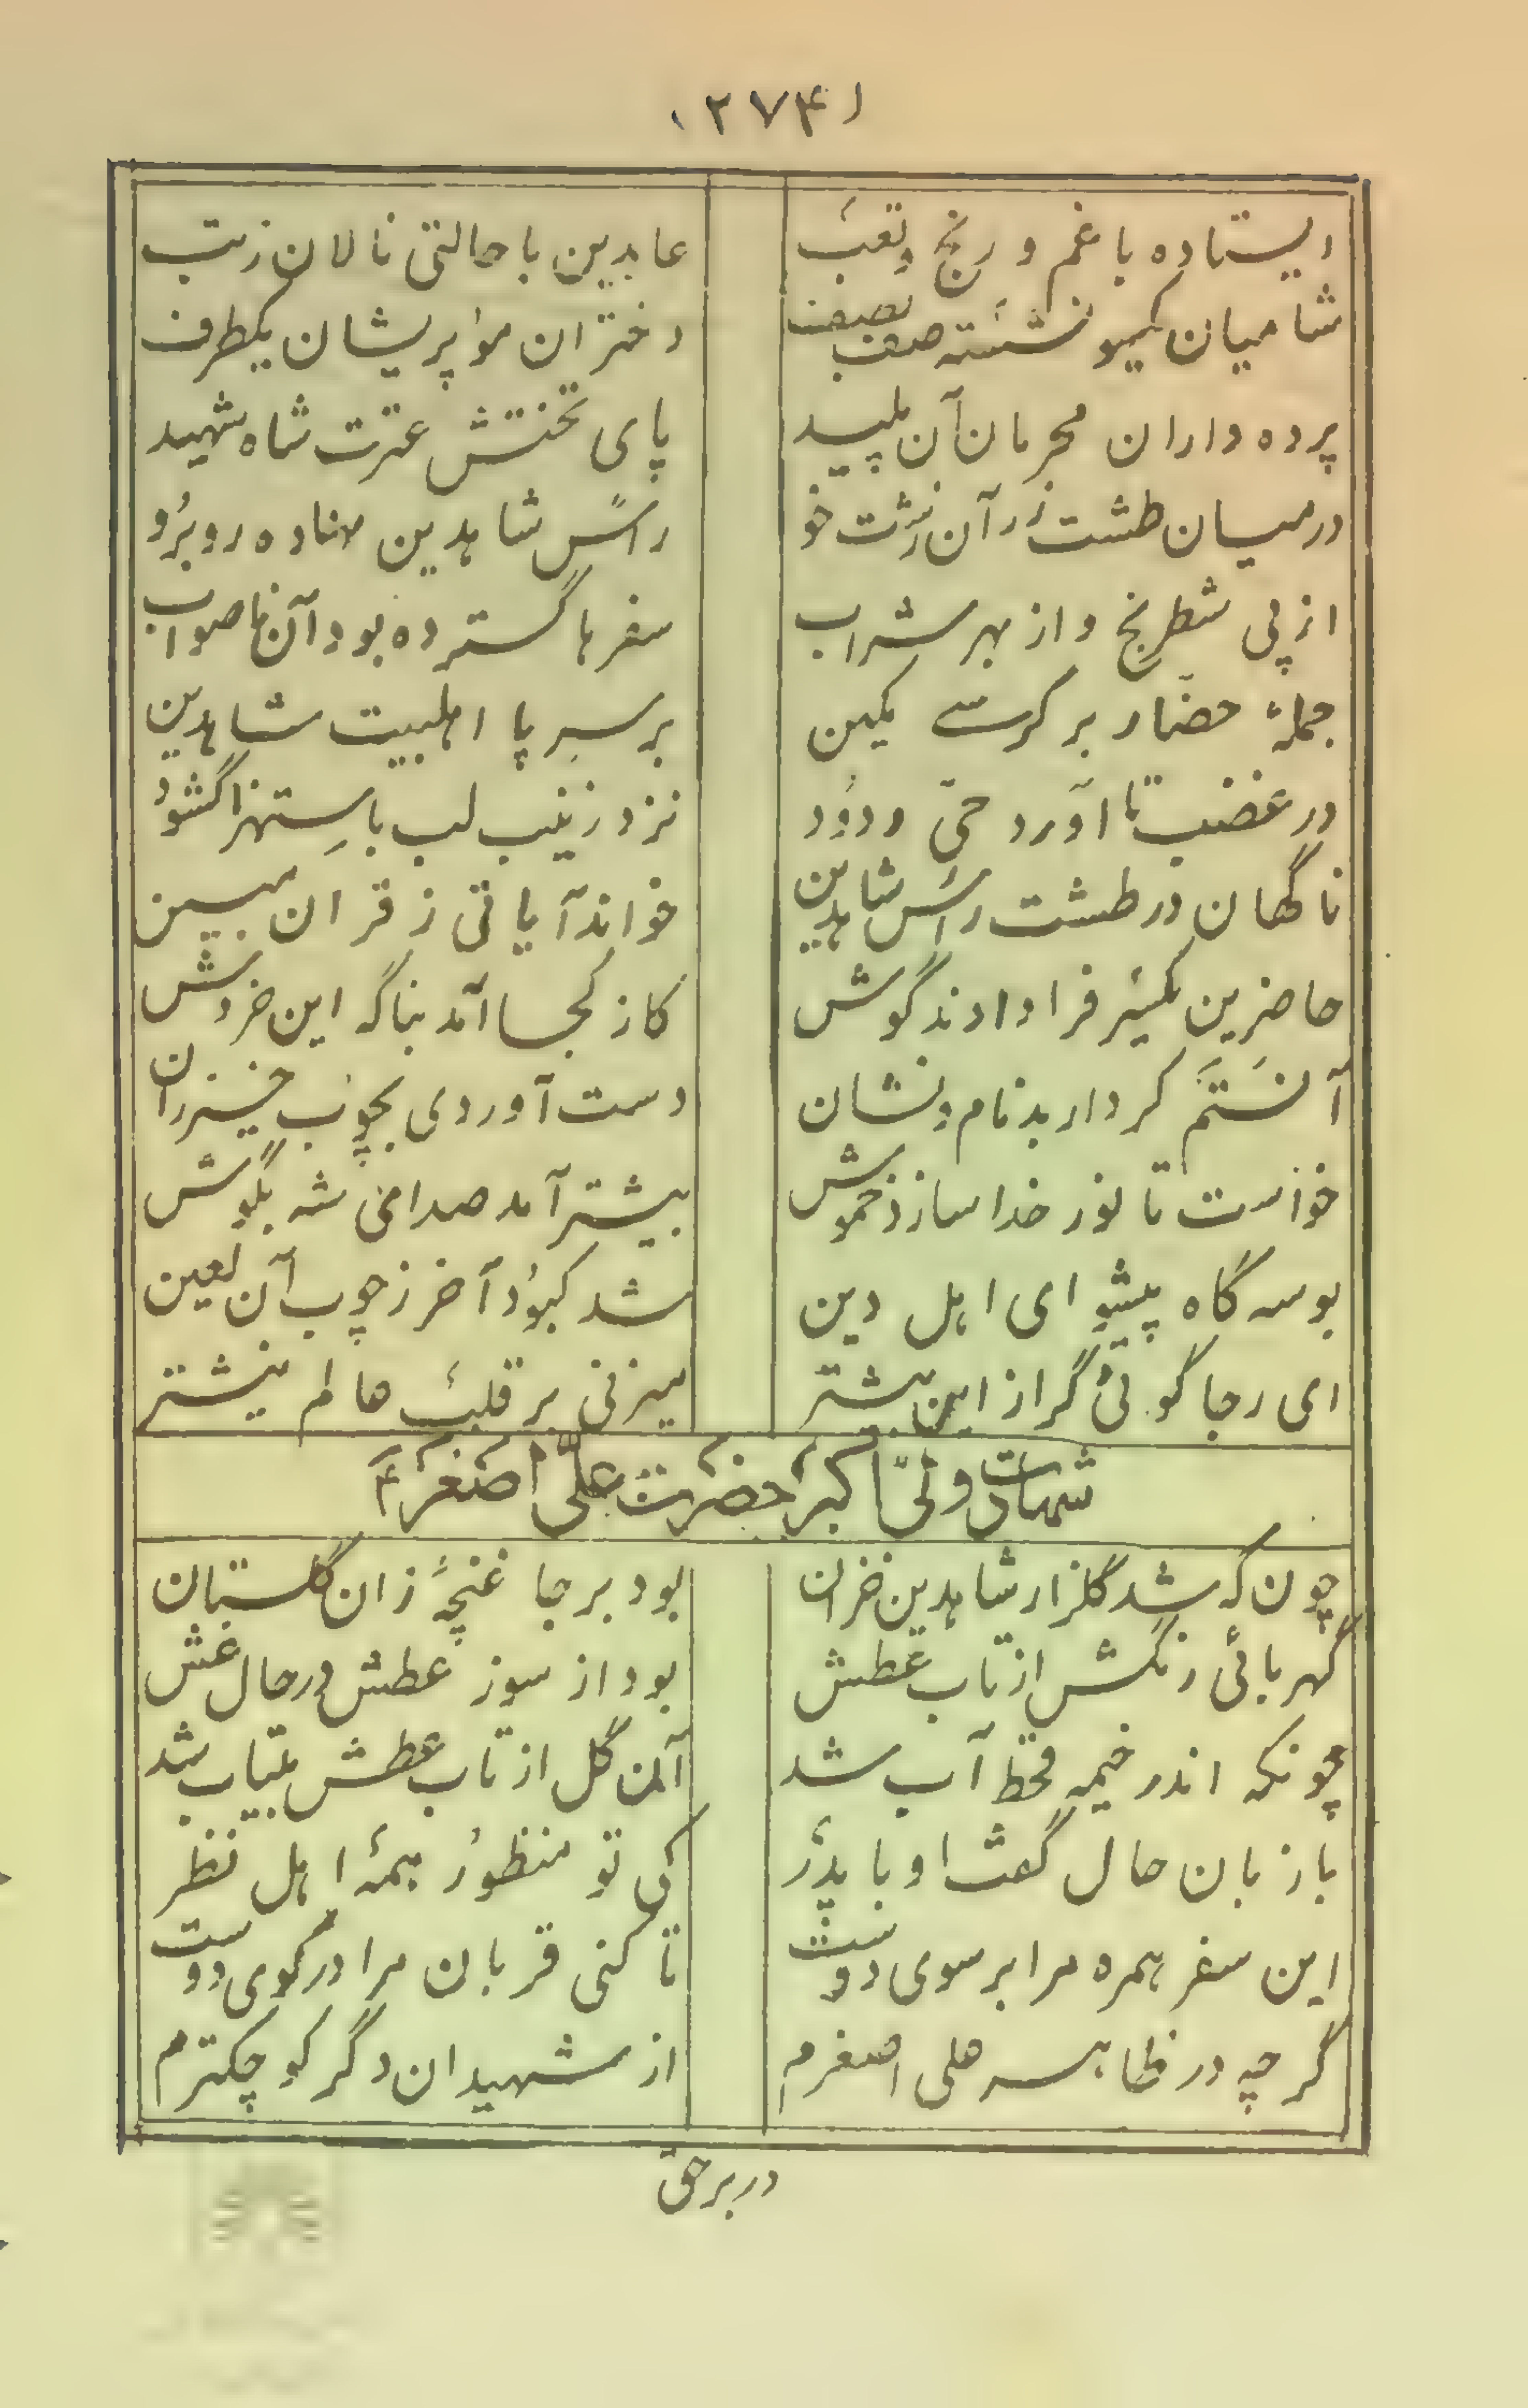 (۲۷۴)
ایستاده با غم و رنج و تعب عابدین با حالتی نالان ز تب
شامیان یکسو نشسته صف بصف دختران مو پریشان یکطرف
پرده داران محرمان آن پلید پای تختش عترت شاه شهید
در میان طشت زر آن زشت خو راس شاهدین نهاده روبرو
از پی شطرنج و از بهر شراب سفرها گسترده بود آن ناصواب
جملۀ حضار بر کرسی مکین بر سر پا اهلبیت شاهدین
در غضب تا آورد حی ودود نزد زینب لب باستهزا گشود
ناگهان در طشت راس شاهدین خواند آیاتی ز قران مبین
حاضرین یکسر فرا دادند گوش کاز کجا آمد بناگه این خروش
آن ستم کردار بد نام و نشان دست آوردی بچوب خیزران
خواست تا نور خدا سازد خموش بیشتر آمد صدای شه بگوش
بوسه گاه پیشوای اهل دین شد کبود آخر ز چوب آن لعین
ای رجا گوئی گر از این بیشتر میزنی بر قلب عالم نیشتر
شهادت ولی اکبر حضرت علی اصغر ع
چون که شد گلزار شاهدین خزان بود بر جا غنچۀ زان گلستان
کهربائی رنگش از تاب عطش بود از سوز عطش در حال غش
چونکه اندر خیمه قحط آب شد آن گل از تاب عطش بیتاب شد
با زبان حال گفت او با پدر کی تو منظور همۀ اهل نظر
این سفر همره مرا بر سوی دوست تا کنی قربان مرا در کوی دوست
گر چه در ظاهر علی اصغرم از شهیدان دگر کوچکترم
در بر حق